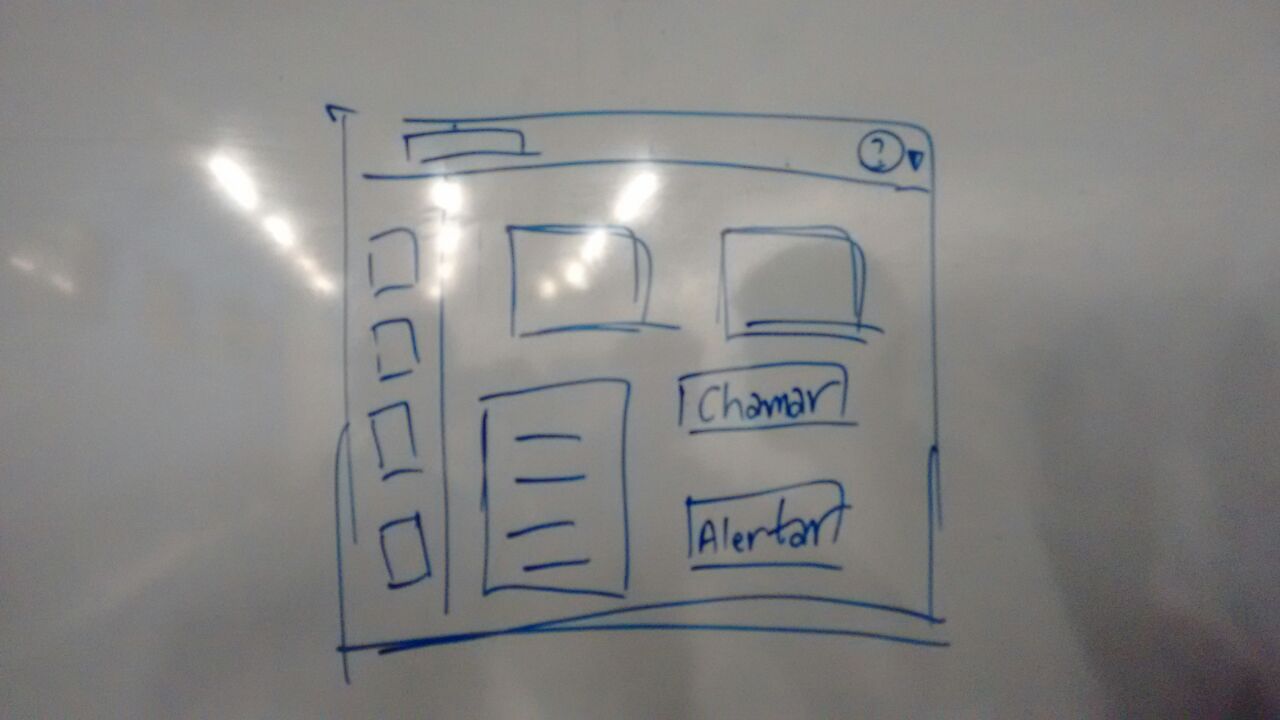 ?
Chamar
Alertar